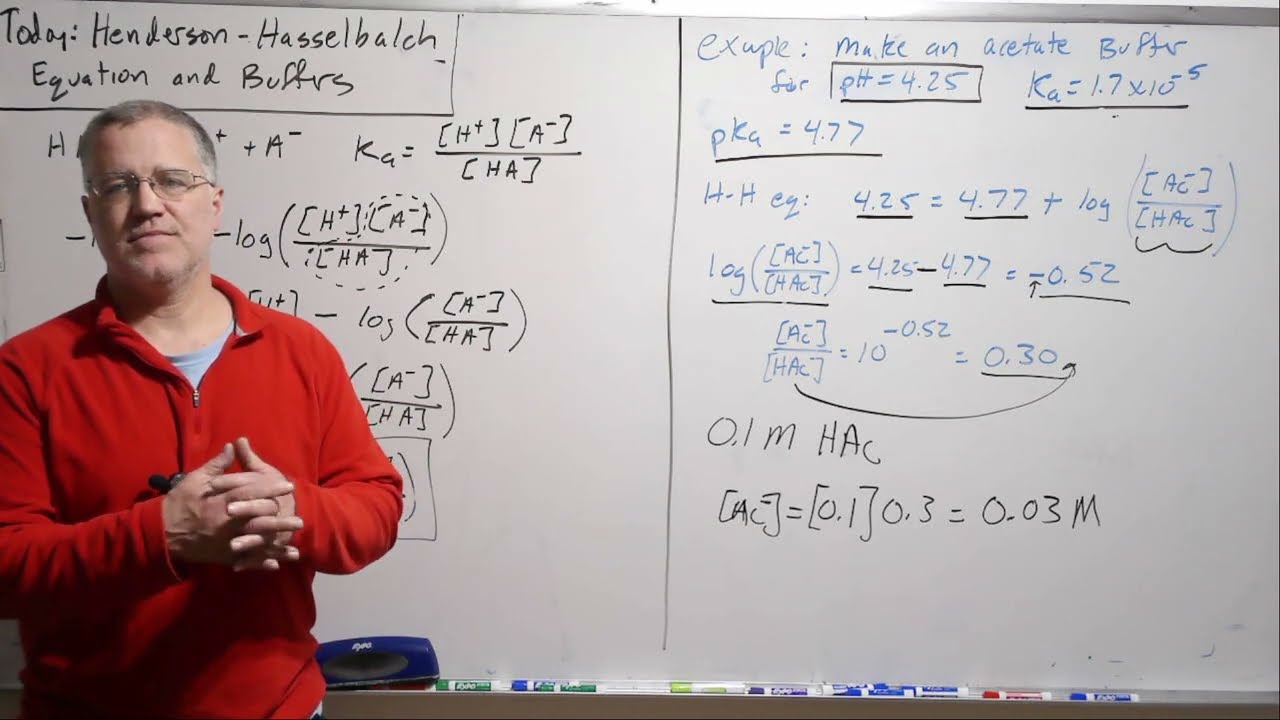 Today: Henderson-Hasselbalch
Equation and Buffrs
H + + A⁻ Ka = [H⁺][A⁻]/[HA]
-log([H⁺][A⁻]/[HA])
- log([A⁻]/[HA])
([A⁻]/[HA])
exaple: Make an acetate Buffer
for pH = 4.25 Ka = 1.7x10⁻⁵
pKa = 4.77
H-H eq: 4.25 = 4.77 + log([Ac⁻]/[HAc])
log([Ac⁻]/[HAc]) = 4.25 - 4.77 = -0.52
[Ac⁻]/[HAc] = 10^-0.52 = 0.30
0.1 M HAc
[Ac⁻] = [0.1] 0.3 = 0.03 M
EXPO